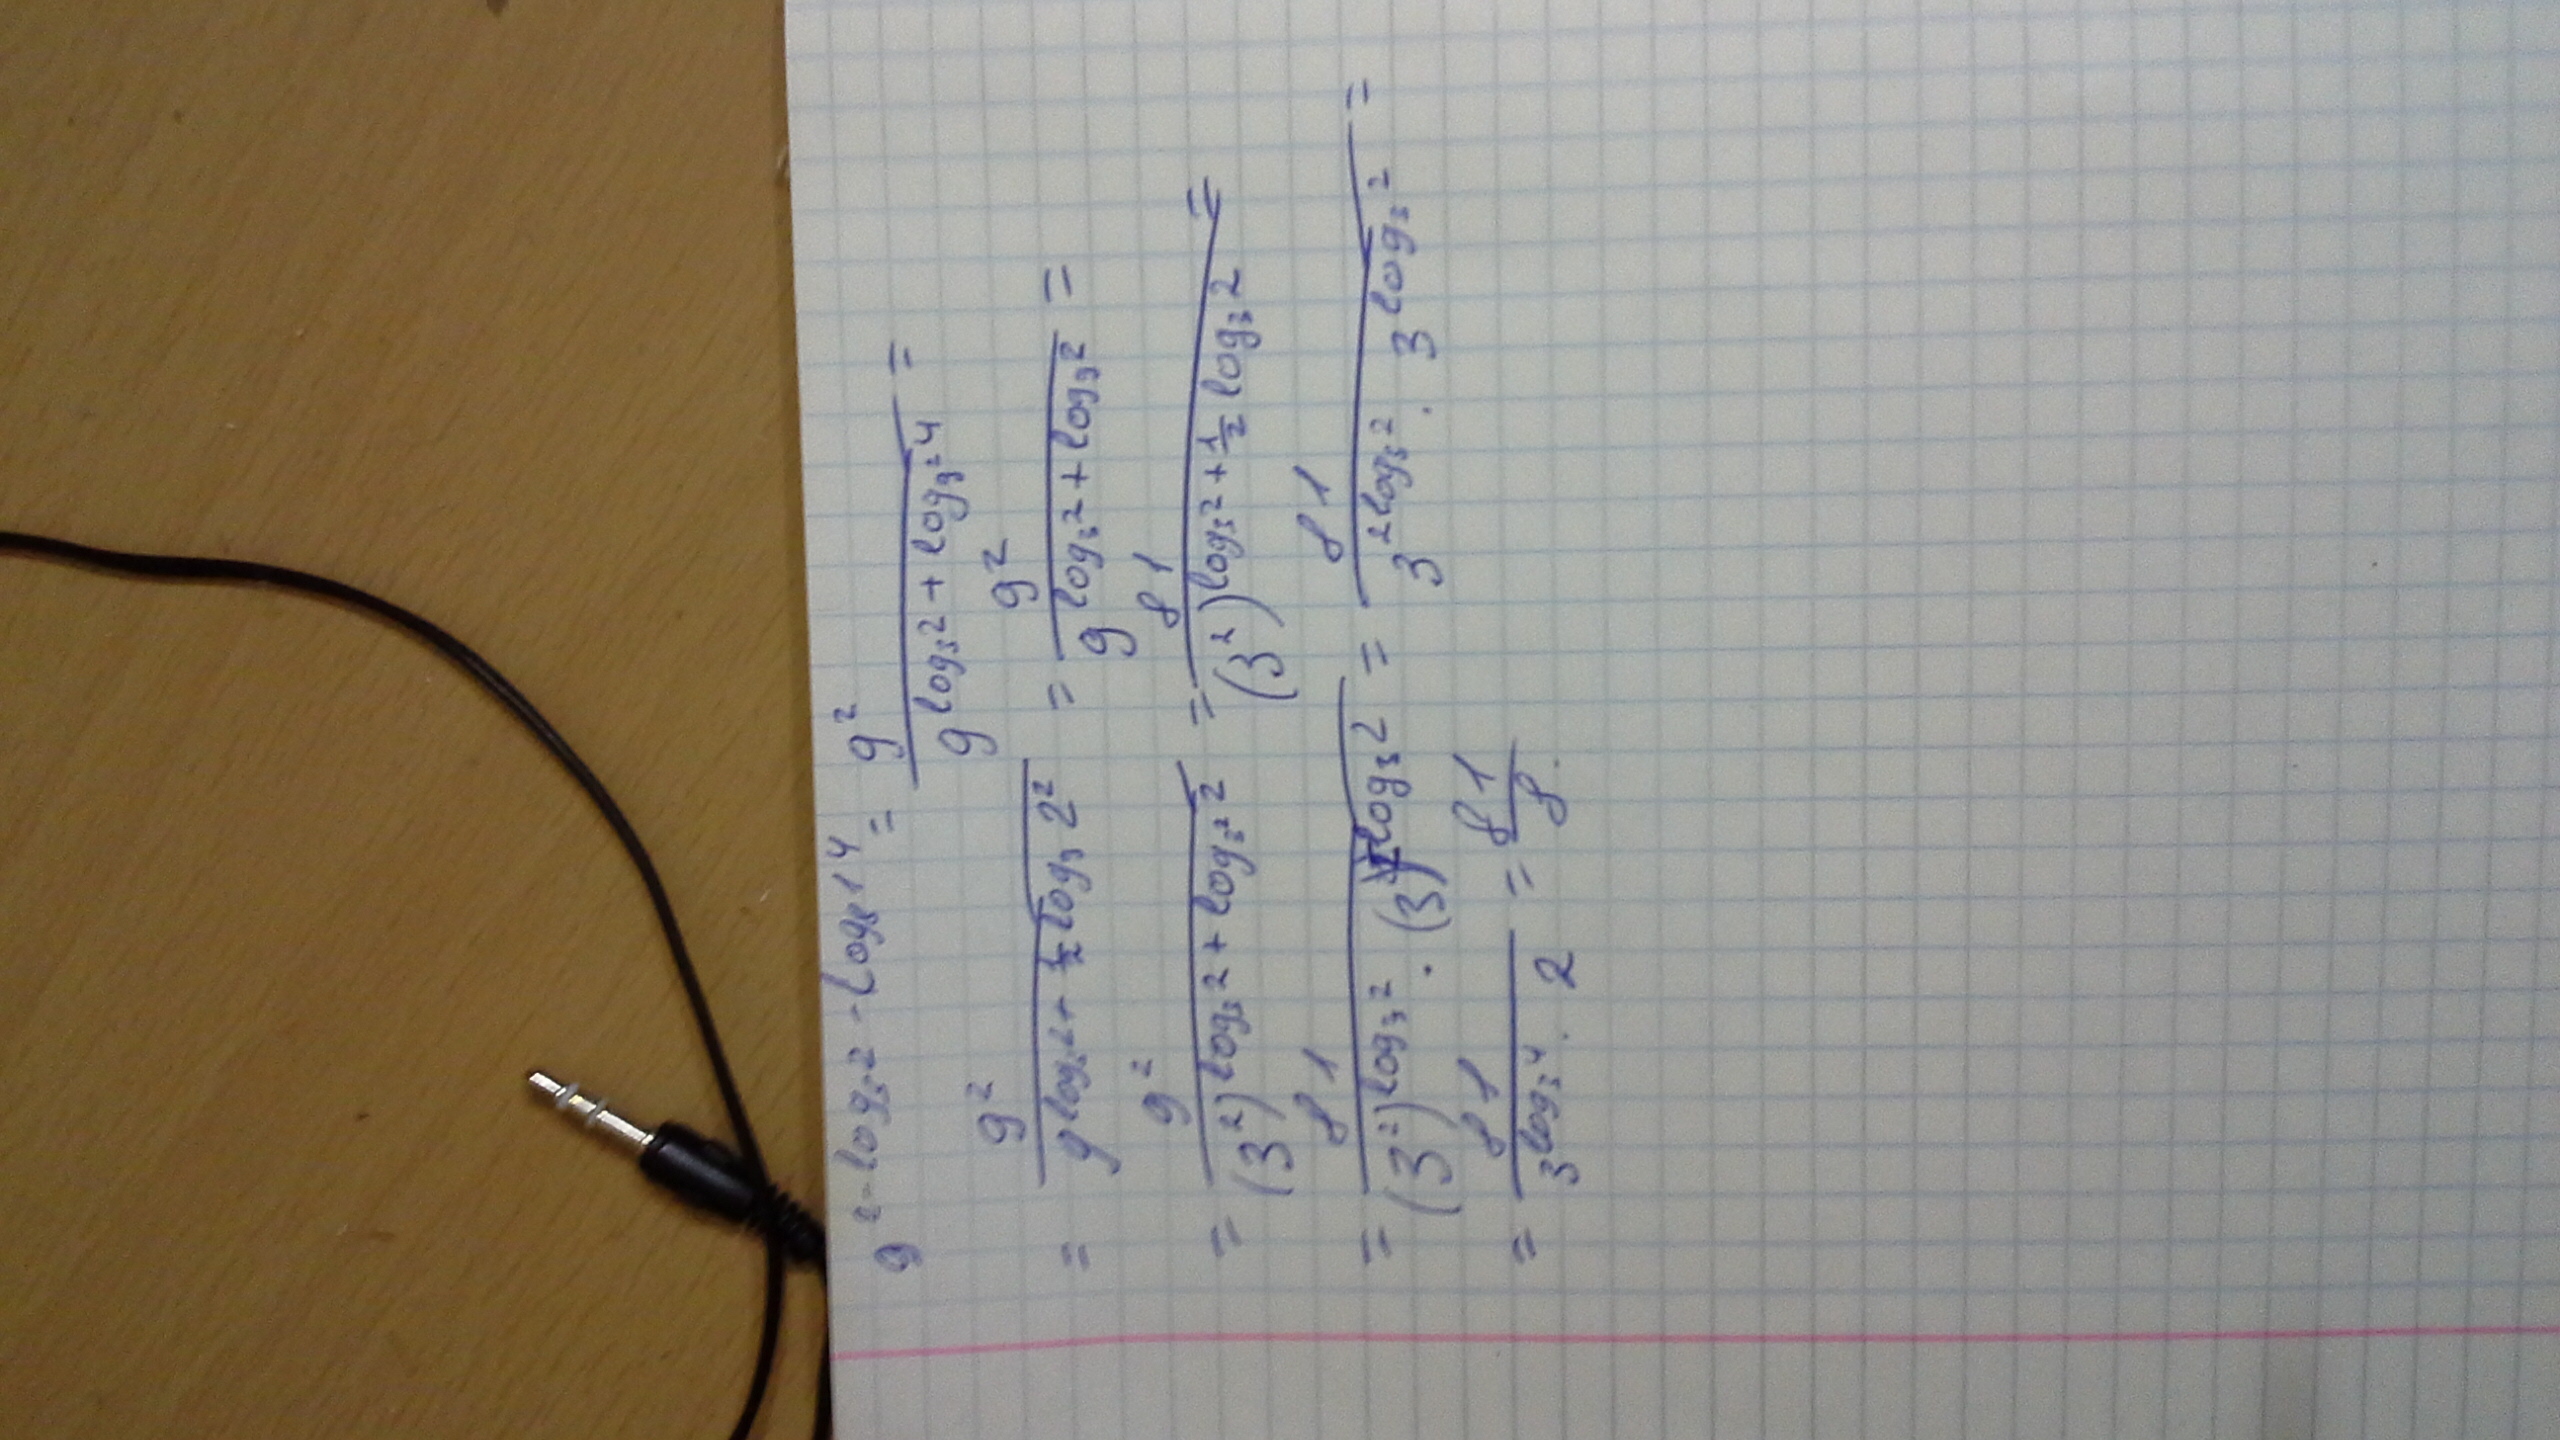 9^{2-log_3 2-log_{81} 4} = \frac{9^2}{9^{log_3 2+log_{9^2} 4}} =
= \frac{9^2}{9^{log_3 2+\frac{1}{2}log_9 2^2}} = \frac{9^2}{9^{log_3 2+log_9 2}} =
= \frac{9^2}{(3^2)^{log_3 2+log_{3^2} 2}} = \frac{81}{(3^2)^{log_3 2+\frac{1}{2}log_3 2}} =
= \frac{81}{(3^2)^{log_3 2} · (3)^{log_3 2}} = \frac{81}{3^{2log_3 2} · 3^{log_3 2}} =
= \frac{81}{3^{log_3 4} · 2} = \frac{81}{8}.